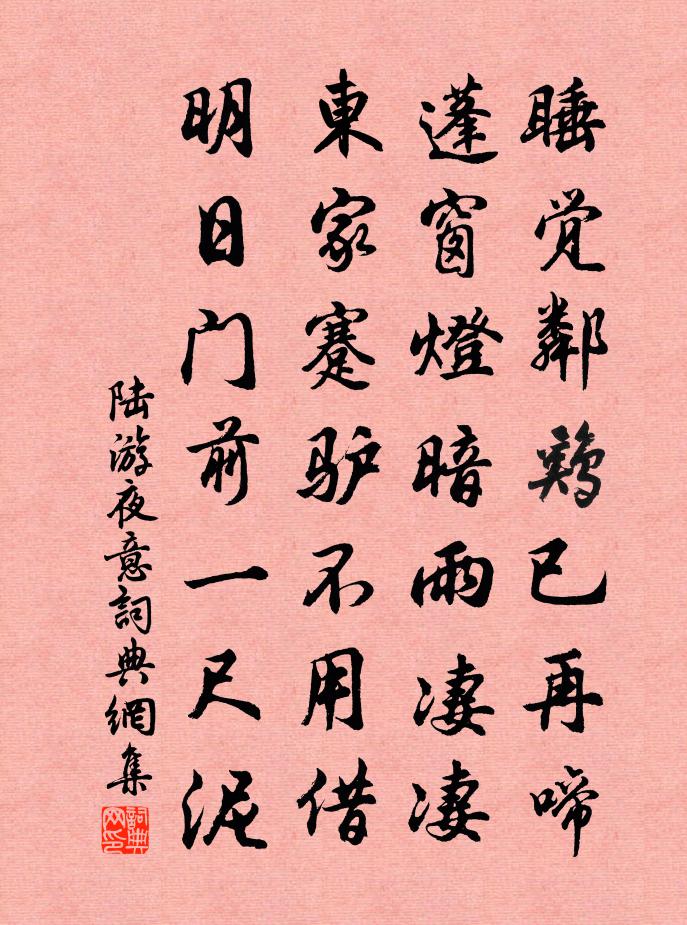 睡觉鄰鷄已再啼
蓬窗燈暗雨凄凄
東家蹇驴不用借
明日门前一尺泥
陆游夜意詞典網集
詞典网印